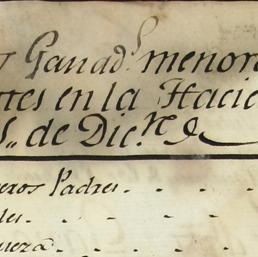 Ganad.s menor
tes en la Hacie
s,, de Dic.re
eros Padres
les
uera